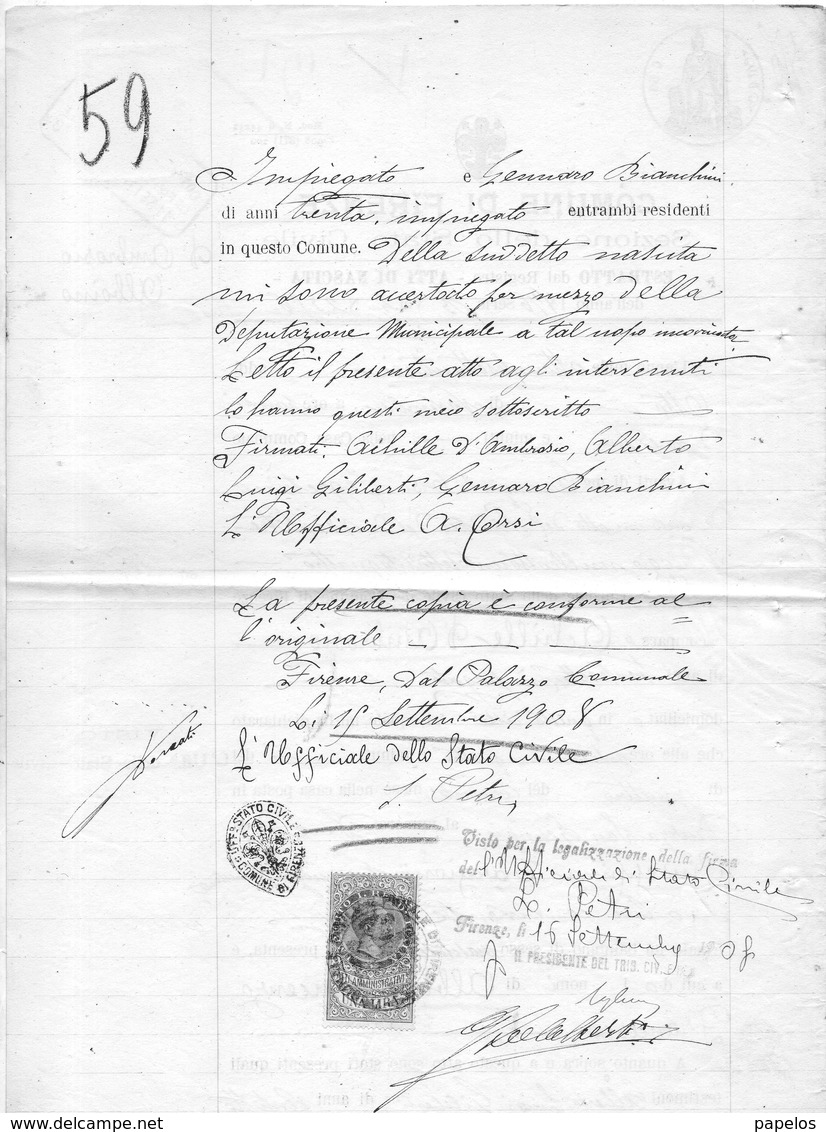 59
Impiegato e Gennaro Bianchini
di anni trenta, impiegato entrambi residenti
in questo Comune. Della suddetto nascita
mi sono accertato per mezzo della
Deputazione Municipale a tal uopo
Letto il presente atto agli intervenuti
lo hanno questi meco sottoscritto
Firmati. Achille D'Ambrosio, Alberto
Luigi Giliberti, Gennaro Bianchini
L'Ufficiale A. Orsi
La presente copia è conforme al
l'originale
Firenze, Dal Palazzo Comunale
Li 15 Settembre 1908
L'Ufficiale dello Stato Civile
Petri
UFF° STATO CIVILE
COMUNE DI FIRENZE
Visto per la legalizzazione della firma
del l'Ufficiale di Stato Civile
Petri
Firenze, li 16 Settembre 08
IL PRESIDENTE DEL TRIB. CIV.
AMMINISTRATIVO
UNA LIRA
papelos